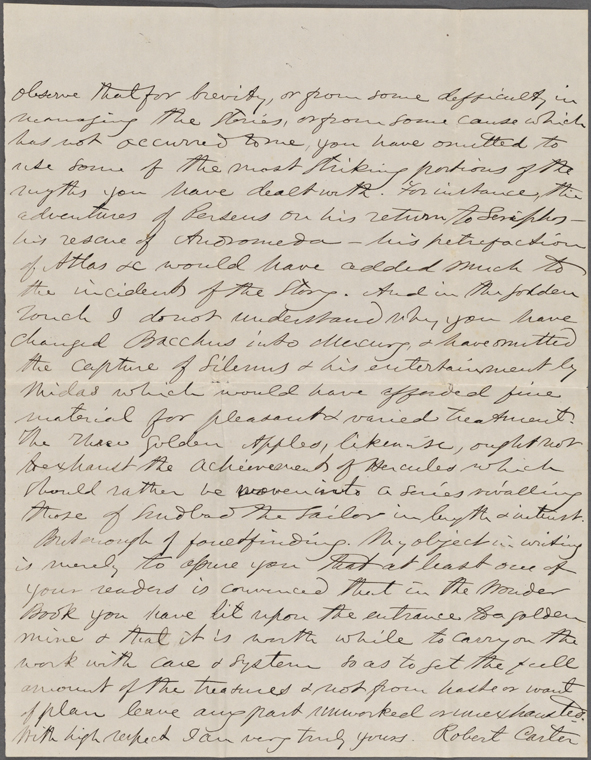 observe that for brevity, or from some difficulty in
managing the stories, or from some cause which
has not occurred to me, you have omitted to
use some of the most striking portions of the
myths you have dealt with. For instance, the
adventures of Perseus on his return to Seriphos –
his rescue of Andromeda – his petrefaction
of Atlas &c would have added much to
the incidents of the Story. And in the Golden
Touch I do not understand why you have
changed Bacchus into Mercury & have omitted
the capture of Silenus & his entertainment by
Midas which would have afforded fine
material for pleasant & varied treatment.
The Three Golden Apples, likewise, ought not
to exhaust the achievements of Hercules which
should rather be woven into a series rivalling
those of Sindbad the Sailor in length & interest.
But enough of faultfinding. My object in writing
is merely to assure you that at least one of
your readers is convinced that in the Wonder
Book you have hit upon the entrance to a golden
mine & that it is worth while to carry on the
work with care & system so as to get the full
amount of the treasures & not from haste or want
of plan leave any part unworked or unexhausted.
With high respect I am very truly yours. Robert Carter